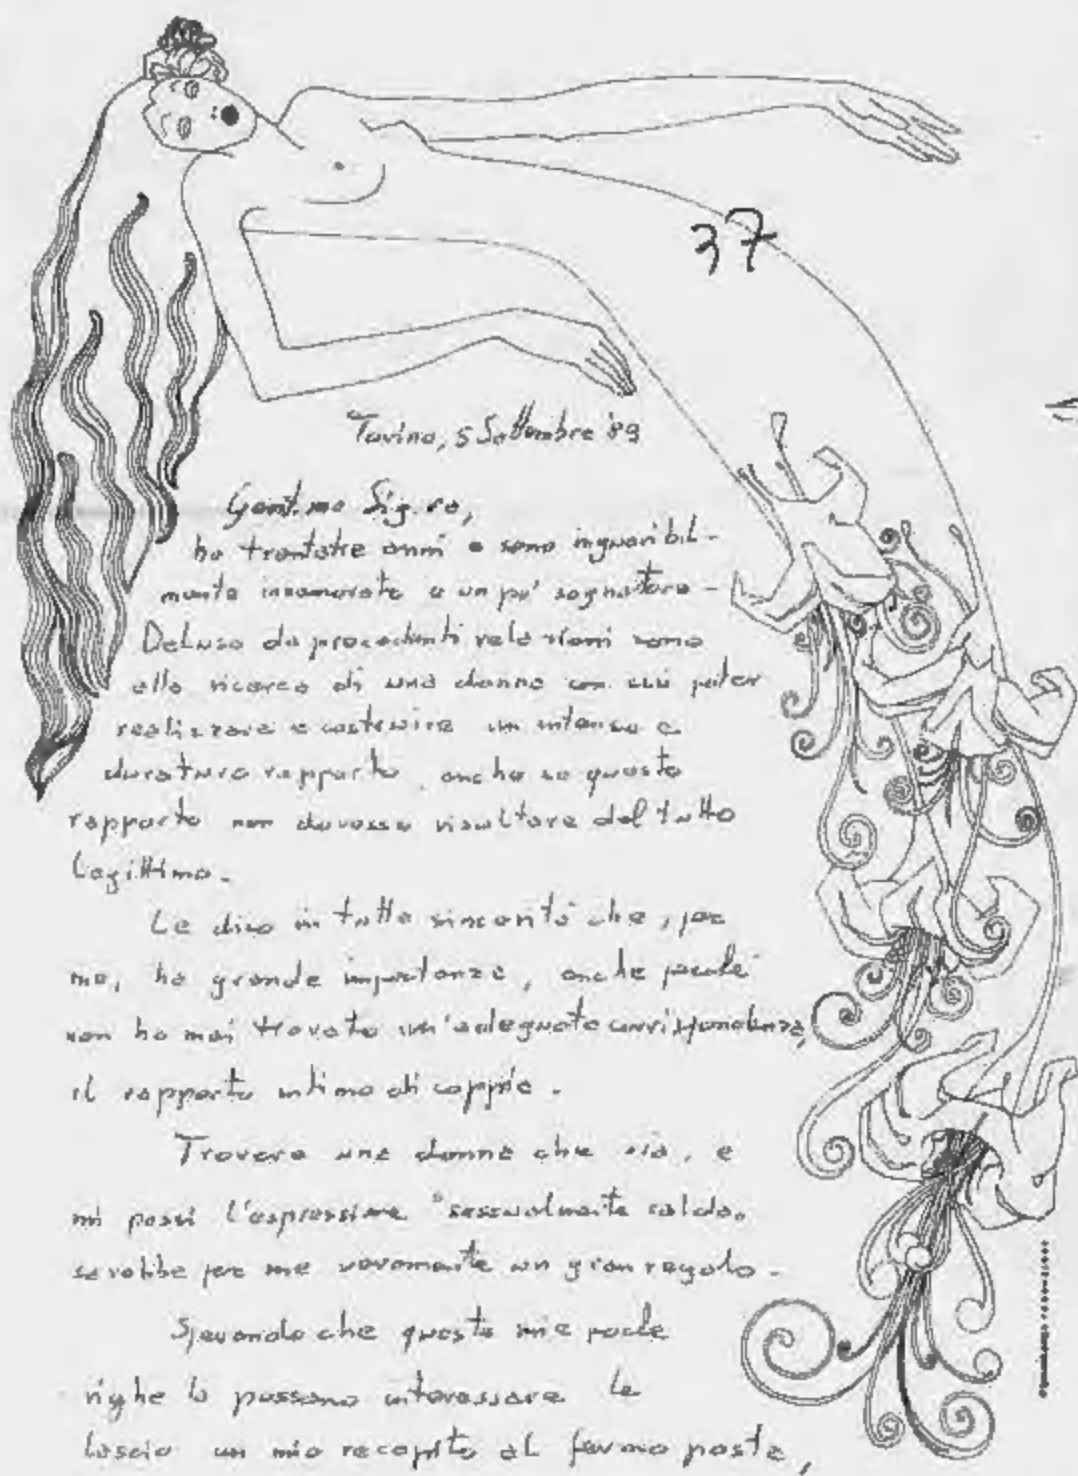 37
Torino, 5 Settembre '89
Gent.ma Sig.ra,
ho trentatre anni e sono inguaribil-
mente innamorato e un po' sognatore -
Deluso da precedenti relazioni sono
alla ricerca di una donna con cui poter
realizzare e costruire un intenso e
duraturo rapporto, anche se questo
rapporto non dovesse risultare del tutto
legittimo.
Le dico in tutta sincerità che, per
me, ha grande importanza, anche perché
non ho mai trovato un'adeguata corrispondenza,
il rapporto intimo di coppia.
Trovare una donna che sia, e
mi passi l'espressione "sessualmente calda"
sarebbe per me veramente un gran regalo.
Sperando che queste mie poche
righe la possano interessare le
lascio un mio recapito al fermo posta,